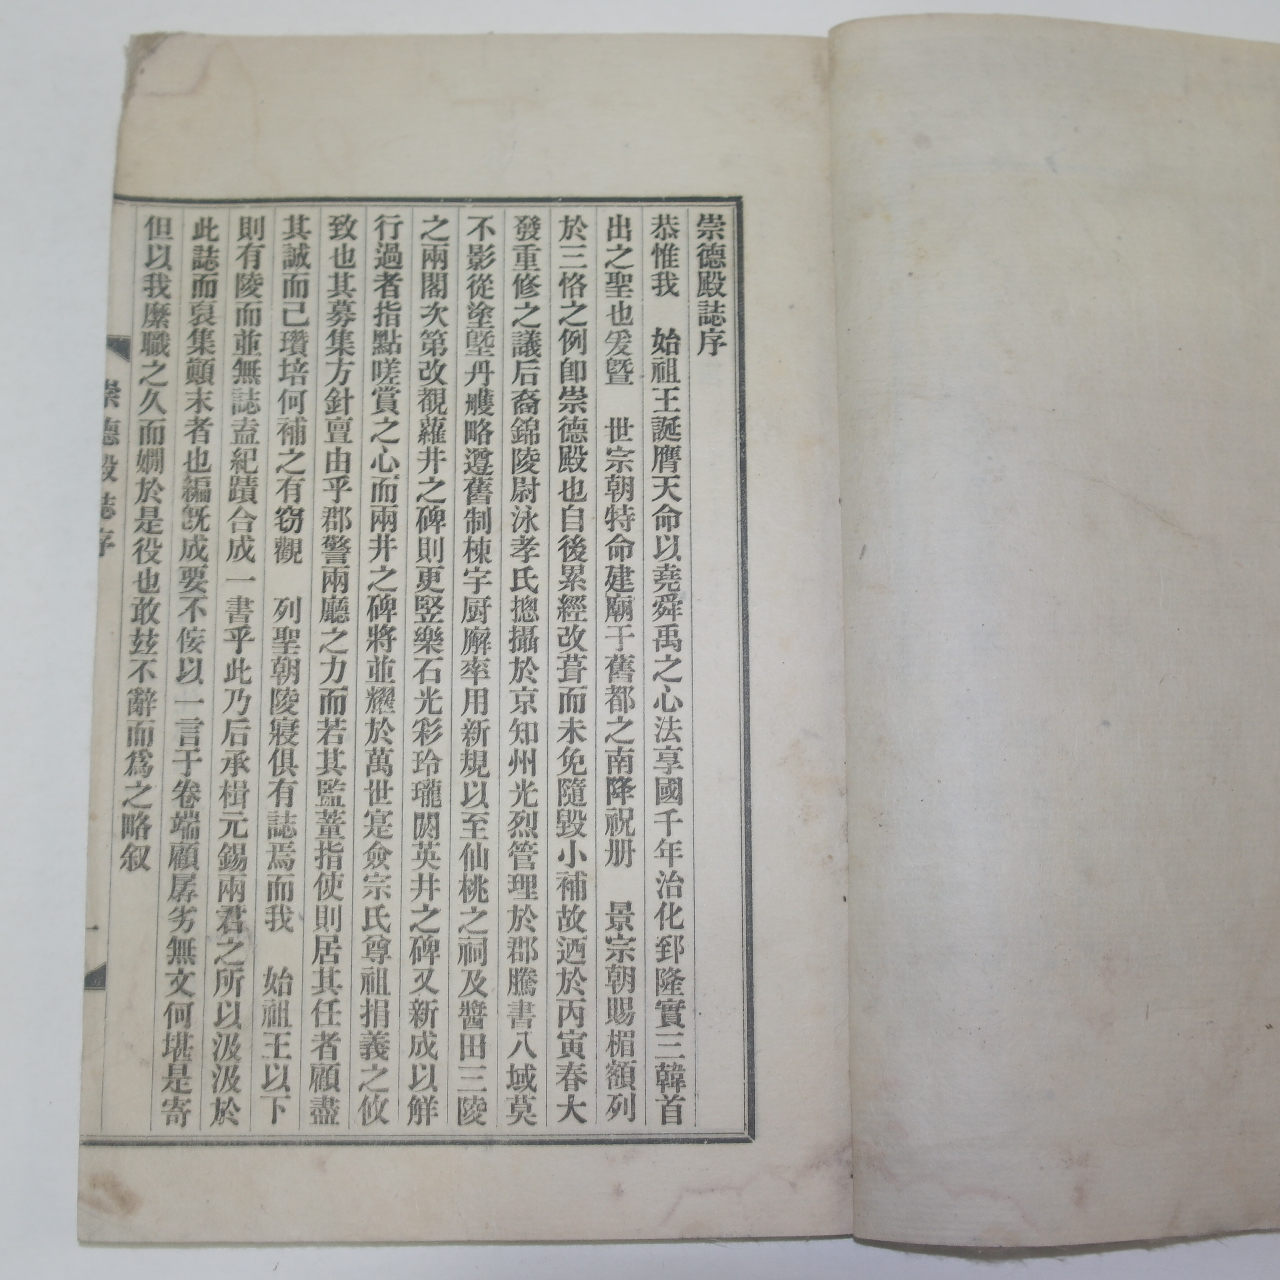 崇德殿誌序
恭惟我 始祖王誕膺天命以堯舜禹之心法享國千年治化郅隆實三韓首
出之聖也爰曁 世宗朝特命建廟于舊都之南降祝册 景宗朝賜楣額列
於三恪之例卽崇德殿也自後累經改葺而未免隨毀小補故迺於丙寅春大
發重修之議后裔錦陵尉泳孝氏摠攝於京知州光烈管理於郡騰書八域莫
不影從塗墍丹雘略遵舊制棟宇厨廨率用新規以至仙桃之祠及醬田三陵
之兩閣次第改覩蘿井之碑則更竪樂石光彩玲瓏閼英井之碑又新成以鮮
行過者指點嗟賞之心而兩井之碑將並耀於萬世寔僉宗氏尊祖捐義之攸
致也其募集方針亶由乎郡警兩廳之力而若其監董指使則居其任者顧盡
其誠而己瓚培何補之有窃觀 列聖朝陵寢俱有誌焉而我 始祖王以下
則有陵而並無誌盖紀蹟合成一書乎此乃后承楫元錫兩君之所以汲汲於
此誌而裒集顚末者也編旣成要不侫以一言于卷端顧孱劣無文何堪是寄
但以我縻職之久而嫺於是役也敢玆不辭而爲之略叙
崇德殿誌序
一